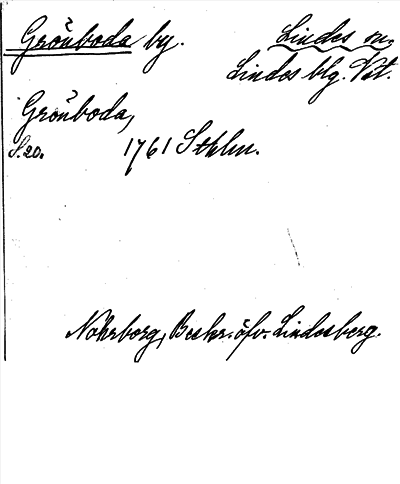 Gröňboda by. Lindes sn.
Lindes blg. Vst.
Gröňboda,
S.20. 1761 Sthlm.
Nohrborg, Beskr. öfv. Lindesberg.